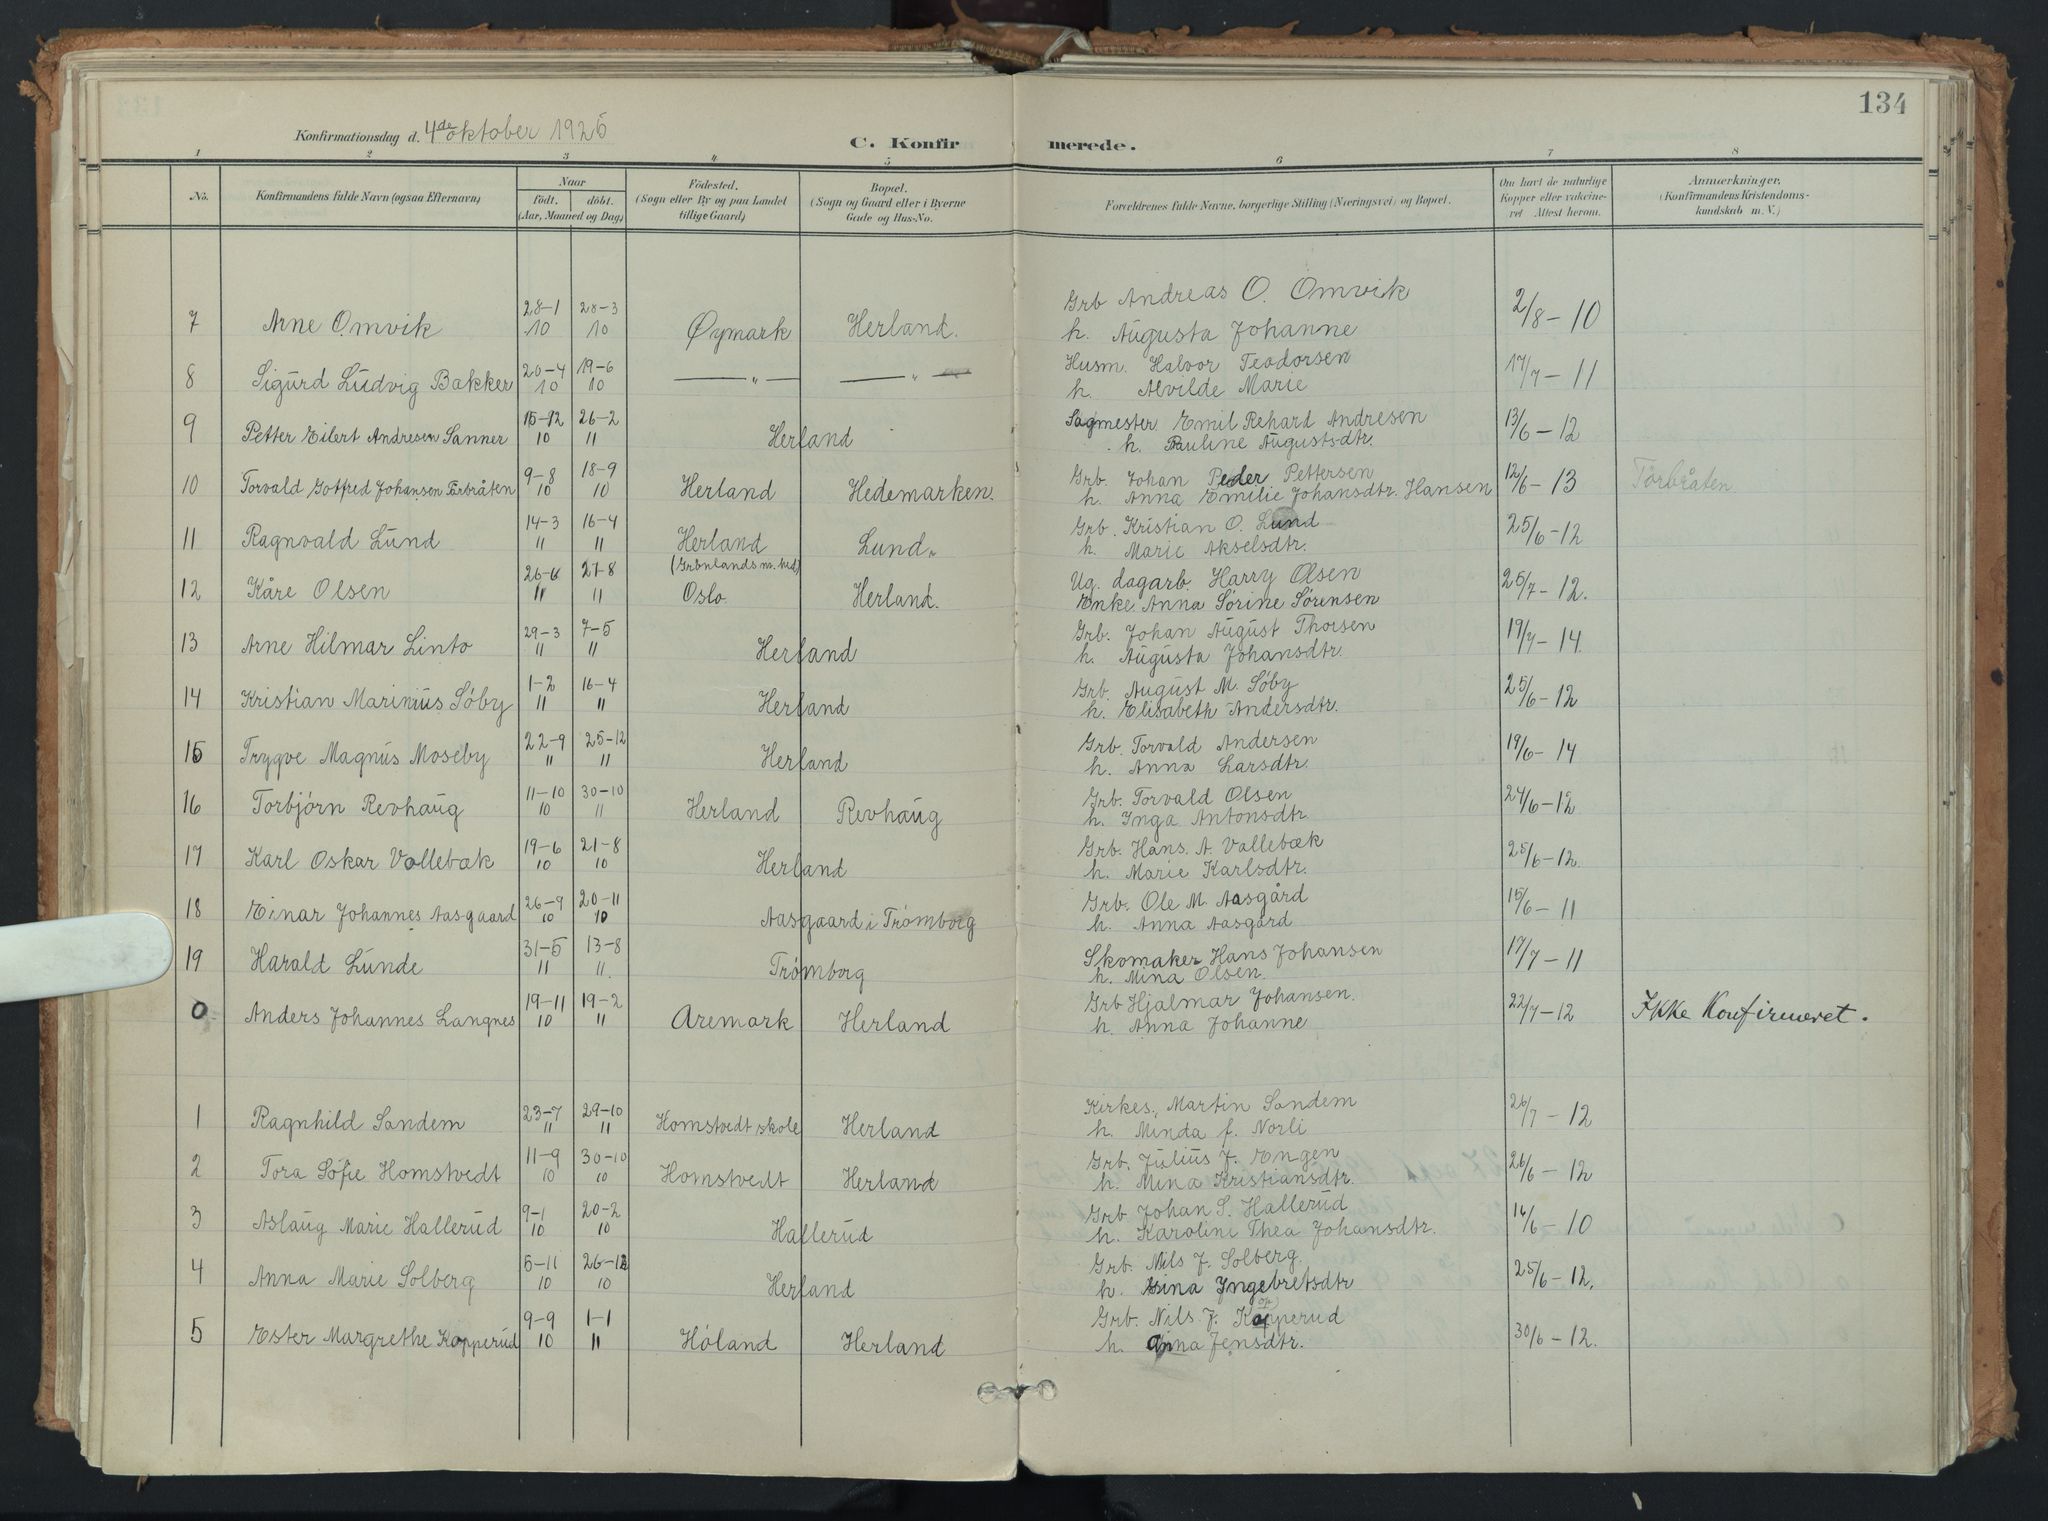 134
Konfirmationsdag d. 4de oktober 1925
C. Konfirmerede.
1 2 3 4 5 6 7 8
No. Konfirmandens fulde Navn (ogsaa Efternavn) Naar født. døbt. (Aar, Maaned og Dag) Födested. (Sogn eller By og paa Landet tillige Gaard) Bopæl. (Sogn og Gaard eller i Byerne Gade og Hus-No. Forældrenes fulde Navne, borgerlige Stilling (Næringsvei) og Bopæl. Om havt de naturlige Kopper eller vakcineret Attest herom. Anmærkninger. (Konfirmandens Kristendomskundskab m. V.)
7 Arne Omvik 28-1 10 28-3 10 Øymark Herland. Grb Andreas O. Omvik 2/8-10
h. Augusta Johanne
8 Sigurd Ludvig Bakker 20-4 10 19-6 10 — " — — " — Husm. Halvor Teodorsen 17/7-11
h. Alvilde Marie
9 Petter Eilert Andresen Sanner 15-12 10 26-2 11 Herland Sagmester Emil Rehard Andresen 13/6-12
h. Pauline Augustsdtr.
10 Torvald Gotfred Johansen Torbråten 9-8 10 18-9 10 Herland Hedemarken. Grb. Johan Peder Pettersen 12/6-13 Torbråten
h. Anna Emilie Johansdtr. Hansen
11 Ragnvald Lund 14-3 11 16-4 11 Herland Lund " Grb. Kristian O. Lund 25/6-12
h. Marie Akselsdtr.
12 Kåre Olsen 26-6 11 27-8 11 (Grønlands m.hed) Oslo. Herland. Ug. dagarb. Harry Olsen 25/7-12.
Enke Anna Sørine Sørensen
13 Arne Hilmar Linto 29-3 11 7-5 11 Herland Grb. Johan August Thorsen 19/7-14
h. Augusta Johansdtr.
14 Kristian Marinius Søby 1-2 11 16-4 11 Herland Grb. August M. Søby 25/6-12
h. Elisabeth Andersdtr.
15 Trygve Magnus Moseby 22-9 11 25-12 11 Herland Grb. Torvald Andersen 19/6-14
h. Anna Larsdtr.
16 Torbjørn Revhaug 11-10 10 30-10 11 Herland Revhaug Grb. Torvald Olsen 24/6-12
h. Inga Antonsdtr.
17 Karl Oskar Vollebæk 19-6 10 21-8 10 Herland Grb. Hans. A. Vollebæk 25/6-12.
h. Marie Karlsdtr.
18 Einar Johannes Aasgaard 26-9 10 20-11 10 Aasgaard i Trømborg Grb. Ole M. Aasgård 15/6-11
h. Anna Aasgård
19 Harald Lunde 31-5 11 13-8 11. Trømborg Skomaker Hans Johansen 17/7-11
h. Mina Olsen.
0 Anders Johannes Langnes 19-11 10 19-2 11 Aremark Herland Grb Hjalmar Johansen. 22/7-12 Ikke Konfirmeret.
h. Anna Johanne
1 Ragnhild Sandem 23-7 11 29-10 11 Homstvedt skole Herland Kirkes. Martin Sandem 26/7-12
h. Minda f. Norli
2 Tora Sofie Homstvedt 11-9 10 30-10 10 Homstvedt Herland Grb. Julius J. Engen 26/6-12
h. Mina Kristiansdtr.
3 Aslaug Marie Hallerud 9-1 10 20-2 10 Hallerud Grb Johan S. Hallerud 16/6-10
h. Karoline Thea Johansdtr.
4 Anna Marie Solberg 5-11 10 26-12 10 Herland Grb. Nils J. Solberg. 25/6-12.
h. Gina Ingebretsdtr
5 Ester Margrethe Kopperud 9-9 10 1-1 11 Høland Herland Grb. Nils J. Kopperud 30/6-12.
h. Anna Jensdtr.